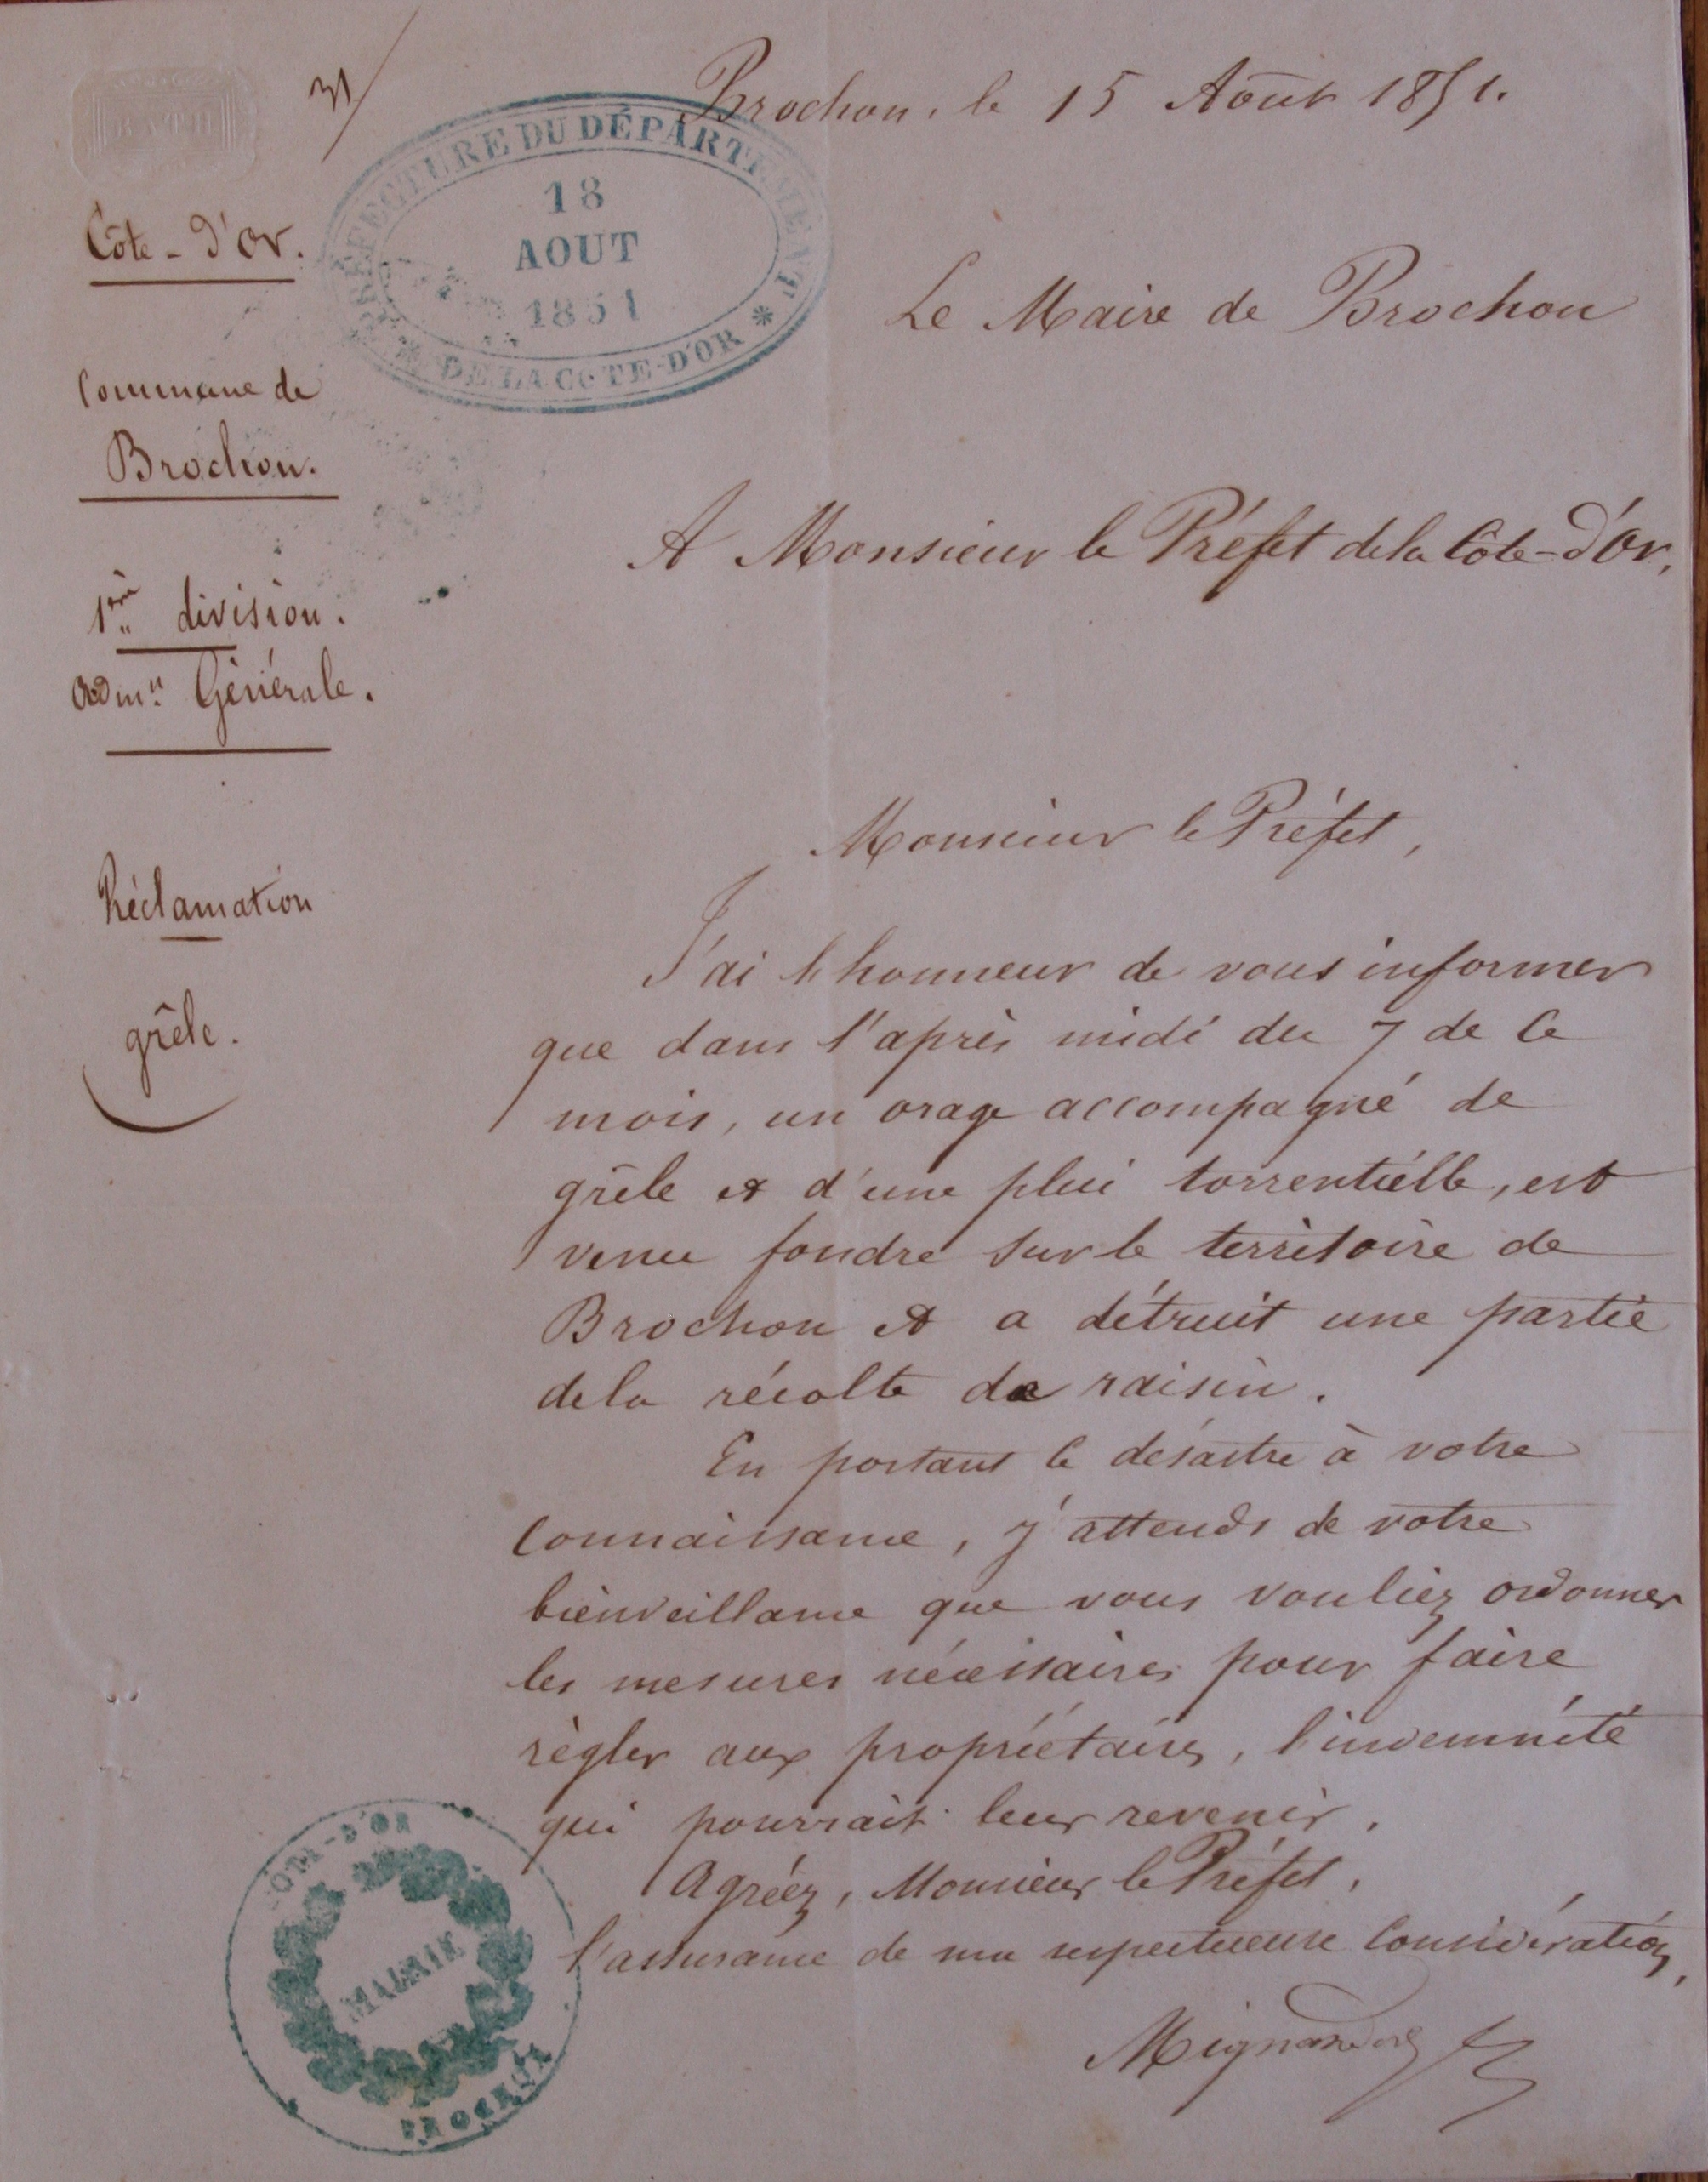 31
Brochon, le 15 Août 1851.
BATH
PRÉFECTURE DU DÉPARTEMENT
18
AOUT
1851
DE LA COTE-D'OR *
Côte-d'Or.
Le Maire de Brochon
Commune de
Brochon.
A Monsieur le Préfet de la Côte-d'Or,
1ère division.
Admon Générale.
Monsieur le Préfet,
Réclamation
grêle.
J'ai l'honneur de vous informer
que dans l'après midi du 7 de ce
mois, un orage accompagné de
grêle et d'une plui torrentielle, est
venu fondre sur le territoire de
Brochon et a détruit une partie
de la récolte de raisin.
En portant ce désastre à votre
connaissance, j'attends de votre
bienveillance que vous vouliez ordonner
les mesures nécessaires pour faire
règler aux propriétaires, l'indemnité
qui pourrait leur revenir.
Agréez, Monsieur le Préfet,
l'assurance de ma respectueuse considération,
COTE-D'OR
MAIRIE
BROCHON